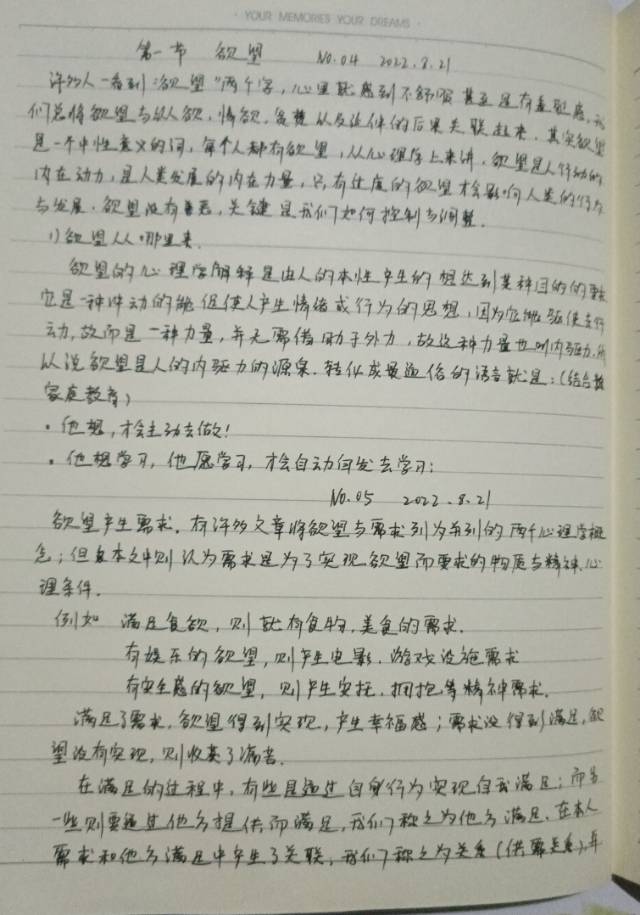 · YOUR MEMORIES YOUR DREAMS ·
第一节 欲望 No.04 2022.8.21
许多人一看到"欲望"两个字,心里就感到不舒服甚至是有羞耻感,我
们总将欲望与私人欲、情欲、贪婪以及这样的后果关联起来,其实欲望
是一个中性意义的词,每个人都有欲望,从心理学上来讲,欲望是人行动的
内在动力,是人类发展的内在力量,只有过度的欲望才会影响人类的行为
与发展。欲望没有善恶,关键是我们如何控制与调整。
1)欲望从哪里来
欲望的心理学解释是由人的本性产生的想达到某种目的的要求
它是一种冲动的能促使人产生情绪或行为的思想,因为它能驱使去行
动,故而是一种力量,并无需借助于外力,故这种力量也叫内驱力,所
以说欲望是人的内驱力的源泉。转化成最通俗的语言就是:(结合
家庭教育)
· 他想,才会主动去做!
· 他想学习,他愿学习,才会自动自发去学习;
No.05 2022.8.21
欲望产生需求。有许多文章将欲望与需求列为并列的两个心理学概
念;但是本文中则认为需求是为了实现欲望而要求的物质与精神、心
理条件。
例如 满足食欲,则就有食物,美食的需求。
有娱乐的欲望,则产生电影、游戏设施需求
有安全感的欲望,则产生安抚、拥抱等精神需求。
满足了需求,欲望得到实现,产生幸福感;需求没得到满足,欲
望没有实现,则收获了痛苦。
在满足的过程中,有些是通过自身行为实现自我满足;而另
一些则要通过他方提供而满足,我们称之为他方满足,在本人
需求和他方满足中产生了关联,我们称之为关系(供需关系),